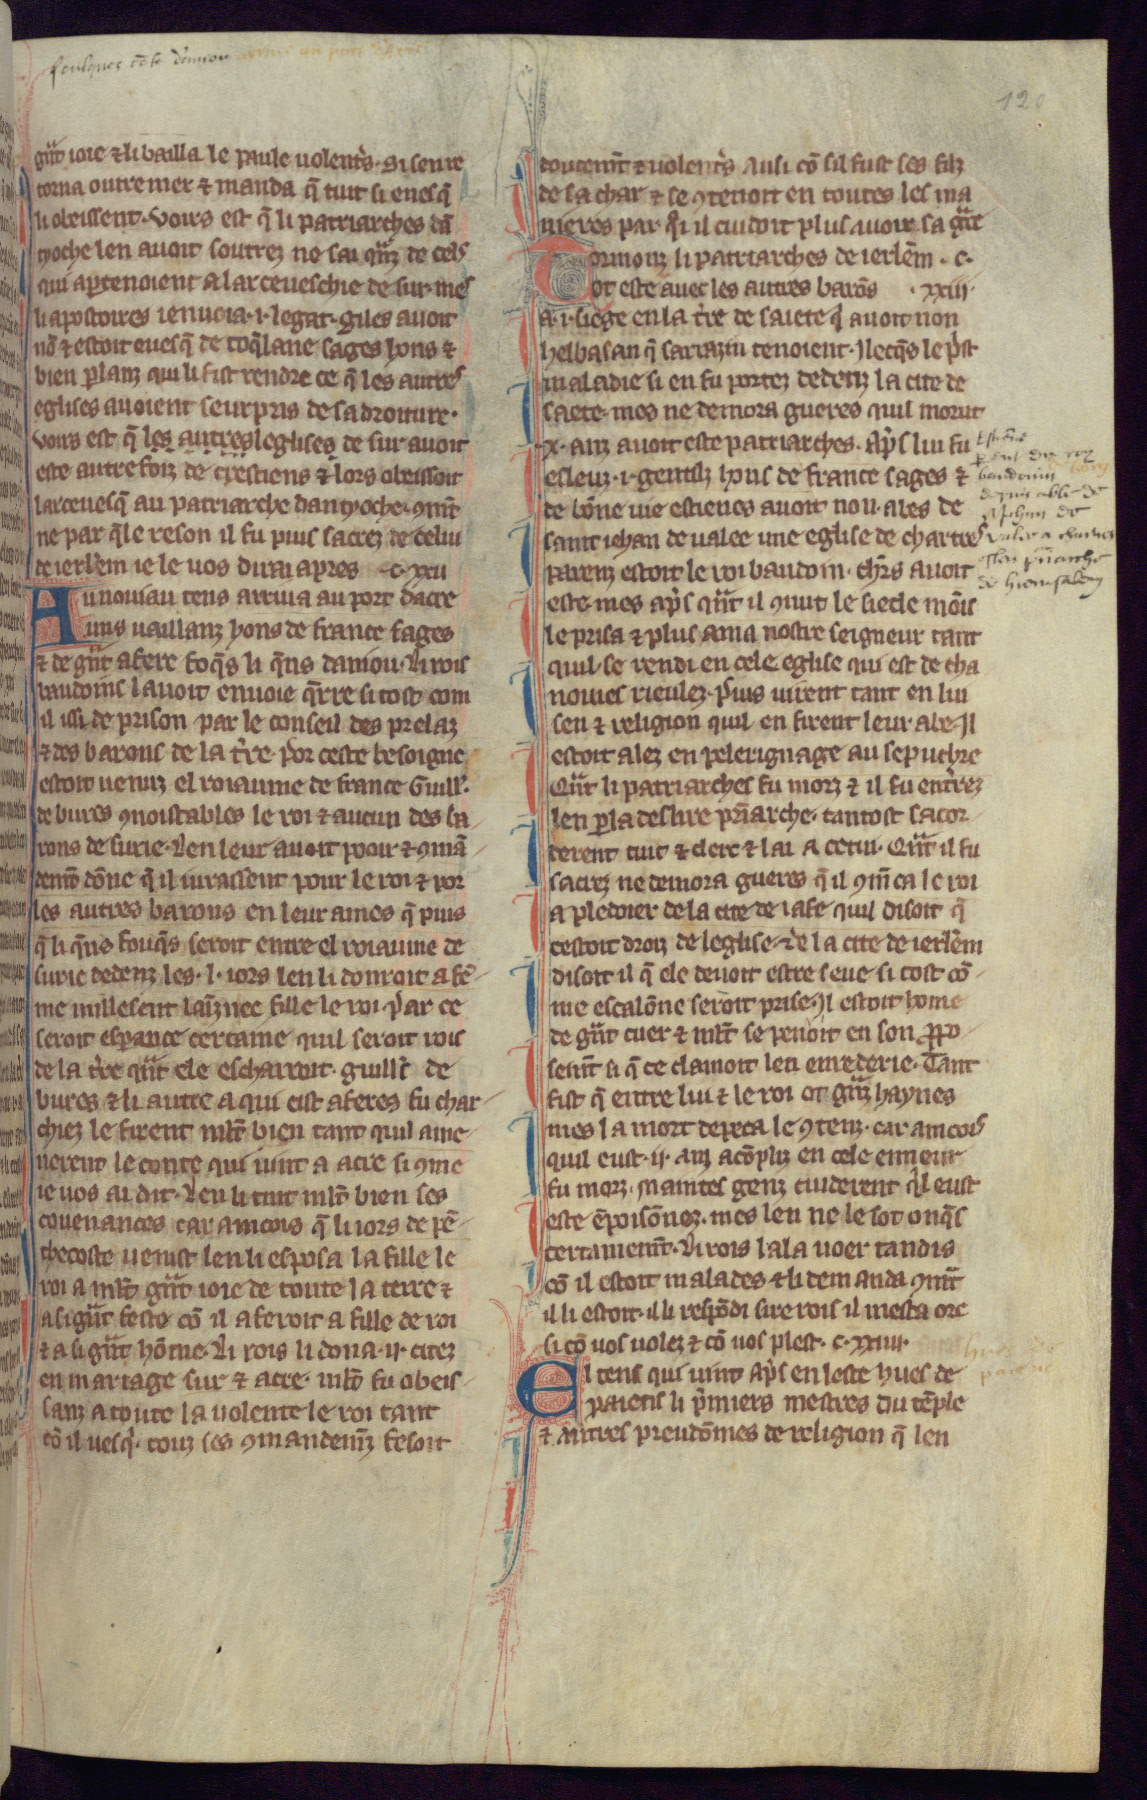 foulques
120
gñt ioie ⁊ li bailla le paule uolentˢs. si sen re
torna outre mer ⁊ manda q̃ tuit si euesq̃
li obeissent. Voirs est q̃ li patriarches dã
tyoche len auoit soutrez ne sai qñz de cels
qui aptenoient a larceueschie de sur. mes
li apostoires i enuoia .i. legat. giles auoit
nõ ⁊ estoit euesq̃ de toq̃lane sages hons ⁊
bien planz qui li fist rendre ce q̃ les autres
eglises auoient seurpris de sa droiture.
Voirs est q̃ les autres leglises de sur auoit
este autrefoiz de crestiens ⁊ lors obeissoit
larceuesq̃ au patriarche dantyoche. ꝯmt̃
ne par q̃le reson il fu puis sacrez de celui
de ierlem̃ ie le uos dirai apres c. xxii
Au nouiau tens arriua au port dacre
uns uaillanz hons de france sages
⁊ de gñt afere foq̃s li q̃ns daniou. Li rois
baudoins lauoit enuoie q̃rre si tost com
il issi de prison par le conseil des prelaz
⁊ des barons de la t̃re. Por ceste besoigne
estoit uenuz el roiaume de france Guill.
de bures ꝯnoistables le roi ⁊ aucun des ba
rons de surie. Len leur auoit pooir ⁊ ꝯmã
demt̃ dõne q̃ il iurassent pour le roi ⁊ por
les autres barons en leur ames q̃ puis
q̃ li q̃ns fouq̃s seroit entre el roiaume de
surie dedenz les .l. iors len li donroit a fẽ
me millesent lainznee fille le roi. Par ce
seroit esperance certaine quil seroit rois
de la t̃re qñt ele escharroit. guill̃ de
bures ⁊ li autre a qui cist aferes fu char
chiez le firent ml̃t bien tant quil ame
nerent le conte qui uint a acre si ꝯme
ie uos ai dit. Len li tint ml̃t bien ses
couenances car aincois q̃ li iors de pẽ
thecoste uenist len li esposa la fille le
roi a ml̃t gñt ioie de toute la terre ⁊
a si gñt feste cõ il aferoit a fille de roi
⁊ a si gñt hõme. Li rois li dona .ii. citez
en mariage sur ⁊ acre. ml̃t fu obeis
sanz a toute la uolente le roi tant
cõ il uesq̃. touz ses ꝯmandemz̃ fesoit
doucemt̃ ⁊ uolentˢs ausi cõ sil fust ses filz
de sa char ⁊ se ꝯtenoit en toutes les ma
nieres par q̃i il cuidoit plus auoir sa gc̃e
Gormonz li patriarches de ierlem̃ . c.
ot este auec les autres barõs . xxiii.
a .i. siege en la t̃re de saiete q̃ auoit non
helbasan q̃ sarrazin tenoient. Ilecq̃s le p̃st
maladie si en fu portez dedenz la cite de
saete. mes ne demora gueres quil morut
.x. anz auoit este patriarches. Ap̃s lui fu
esleuz .i. gentilz hons de france sages ⁊
de bõne uie estienes auoit non. abes de
saint iehan de ualee une eglise de chartres
parenz estoit le roi baudoin. chrs̃ auoit
este. mes ap̃s qñt il ꝯnut le siecle mõis
le prisa ⁊ plus ama nostre seigneur tant
quil se rendi en cele eglise qui est de cha
noines rieulez. Puis uirent tant en lui
sen ⁊ religion quil en firent leur abe. Il
estoit alez en pelerignage au sepuchre
Qñt li patriarches fu morz ⁊ il fu entˢrez
len pla deslire pñarche. tantost sacor
derent tuit ⁊ clerc ⁊ lai a cetui. Qñt il fu
sacrez ne demora gueres q̃ il ꝯmẽca le roi
a pledoier de la cite de iafe quil disoit q̃
cestoit droiz de leglise. ⁊ de la cite de ierlem̃
disoit il q̃ ele deuoit estre seue si tost cõ
me escalõne seroit prise. Il estoit home
de gñt cuer ⁊ ml̃t se penoit en son propo
semt̃ si q̃ ce clamoit len enrederie. Tant
fist q̃ entre lui ⁊ le roi ot gñz haynes
mes la mort depeca le ꝯtenz. car aincois
quil eust .ii. anz acõpliz en cele enneur
fu morz. Maintes genz cuiderent q̃l eust
este ẽpoisõnez. mes len ne le sot onq̃s
certainemt̃. Li rois lala ueer tandis
cõ il estoit malades ⁊ li demanda ꝯmt̃
il li estoit. il li respõdi sire rois il mesta ore
si cõ uos uolez ⁊ cõ uos plest. c. xxiiii.
El tens qui uint ap̃s en leste hues de
paiens li p̃miers mestres du tẽple
⁊ autres preudõmes de religion q̃ len